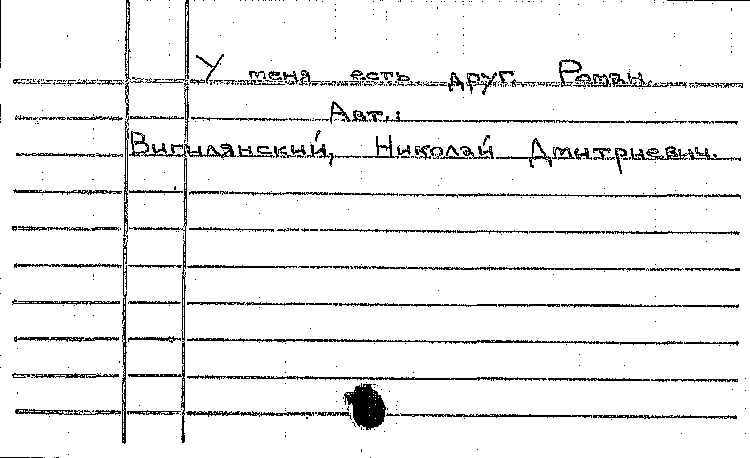 У меня есть друг. Роман.
Авт.:
Вигилянский, Николай Дмитриевич.